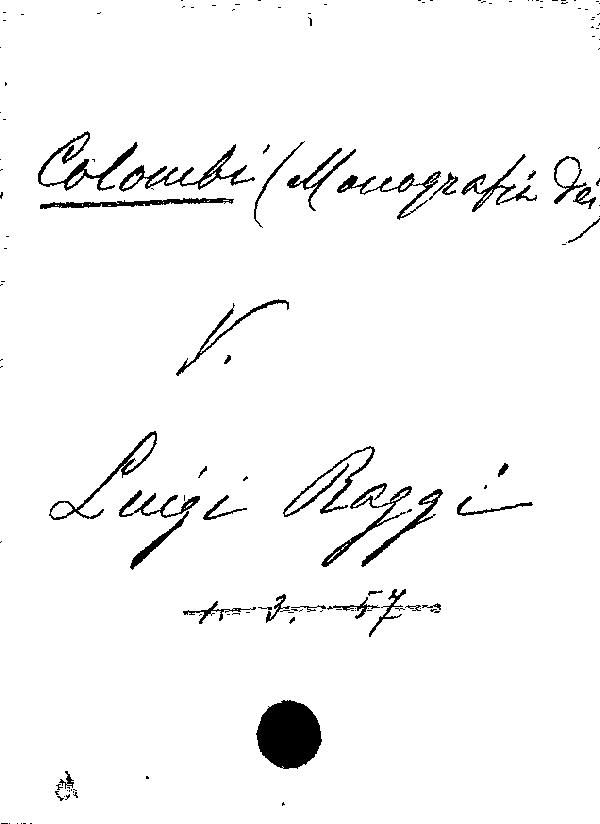 Colombi (Monografia dei)
V.
Luigi Raggi
1. 3. 57